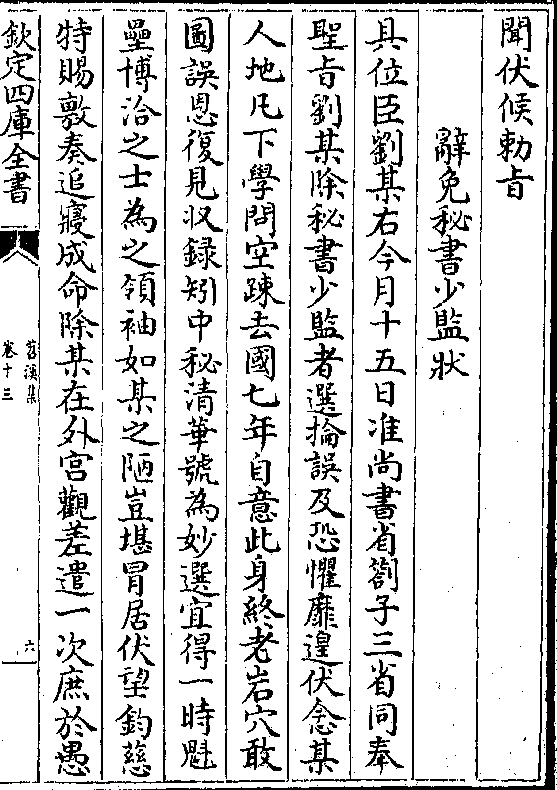 聞伏候勅㫖
辭免秘書少監狀
具位臣劉某右今月十五日准尚書省劄子三省同奉
聖㫖劉某除秘書少監者選掄誤及恐懼靡遑伏念某
人地凡下學問空踈去國七年自意此身終老岩穴敢
圖誤恩復見収録矧中秘清華號為妙選宜得一時魁
壘博洽之士為之領袖如某之陋豈堪冒居伏望鈞慈
特賜敷奏追寢成命除某在外宫觀差遣一次庶於愚
欽定四庫全書
苕溪集
卷十三
六